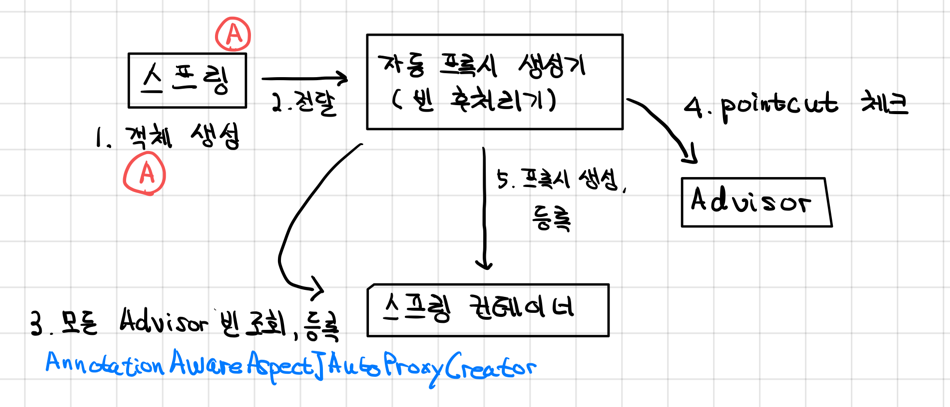 A
스프링
1. 객체 생성
A
2. 전달
자동 프록시 생성기
(빈 후처리기)
4. pointcut 체크
Advisor
5. 프록시 생성,
등록
3. 모든 Advisor 빈 조회, 등록
스프링 컨테이너
AnnotationAwareAspectJAutoProxyCreator